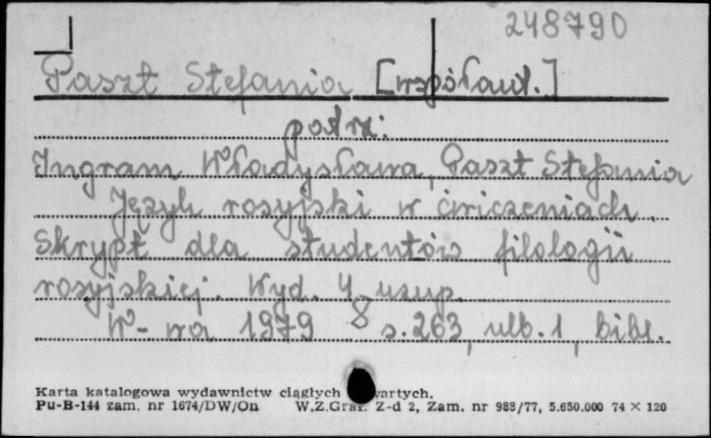 248790
Paszt Stefania [współaut.]
patrz:
Ingram Władysława, Paszt Stefania
Język rosyjski w ćwiczeniach.
Skrypt dla studentów filologii
rosyjskiej. Wyd. 4 uzup.
W-wa 1979 8 s. 263, nlb. 1, bibl.
Karta katalogowa wydawnictw ciągłych wartych.
Pu-B-144 zam. nr 1674/DW/On W.Z.Graf. Z-d 2, Zam. nr 983/77, 5.650.000 74 × 120